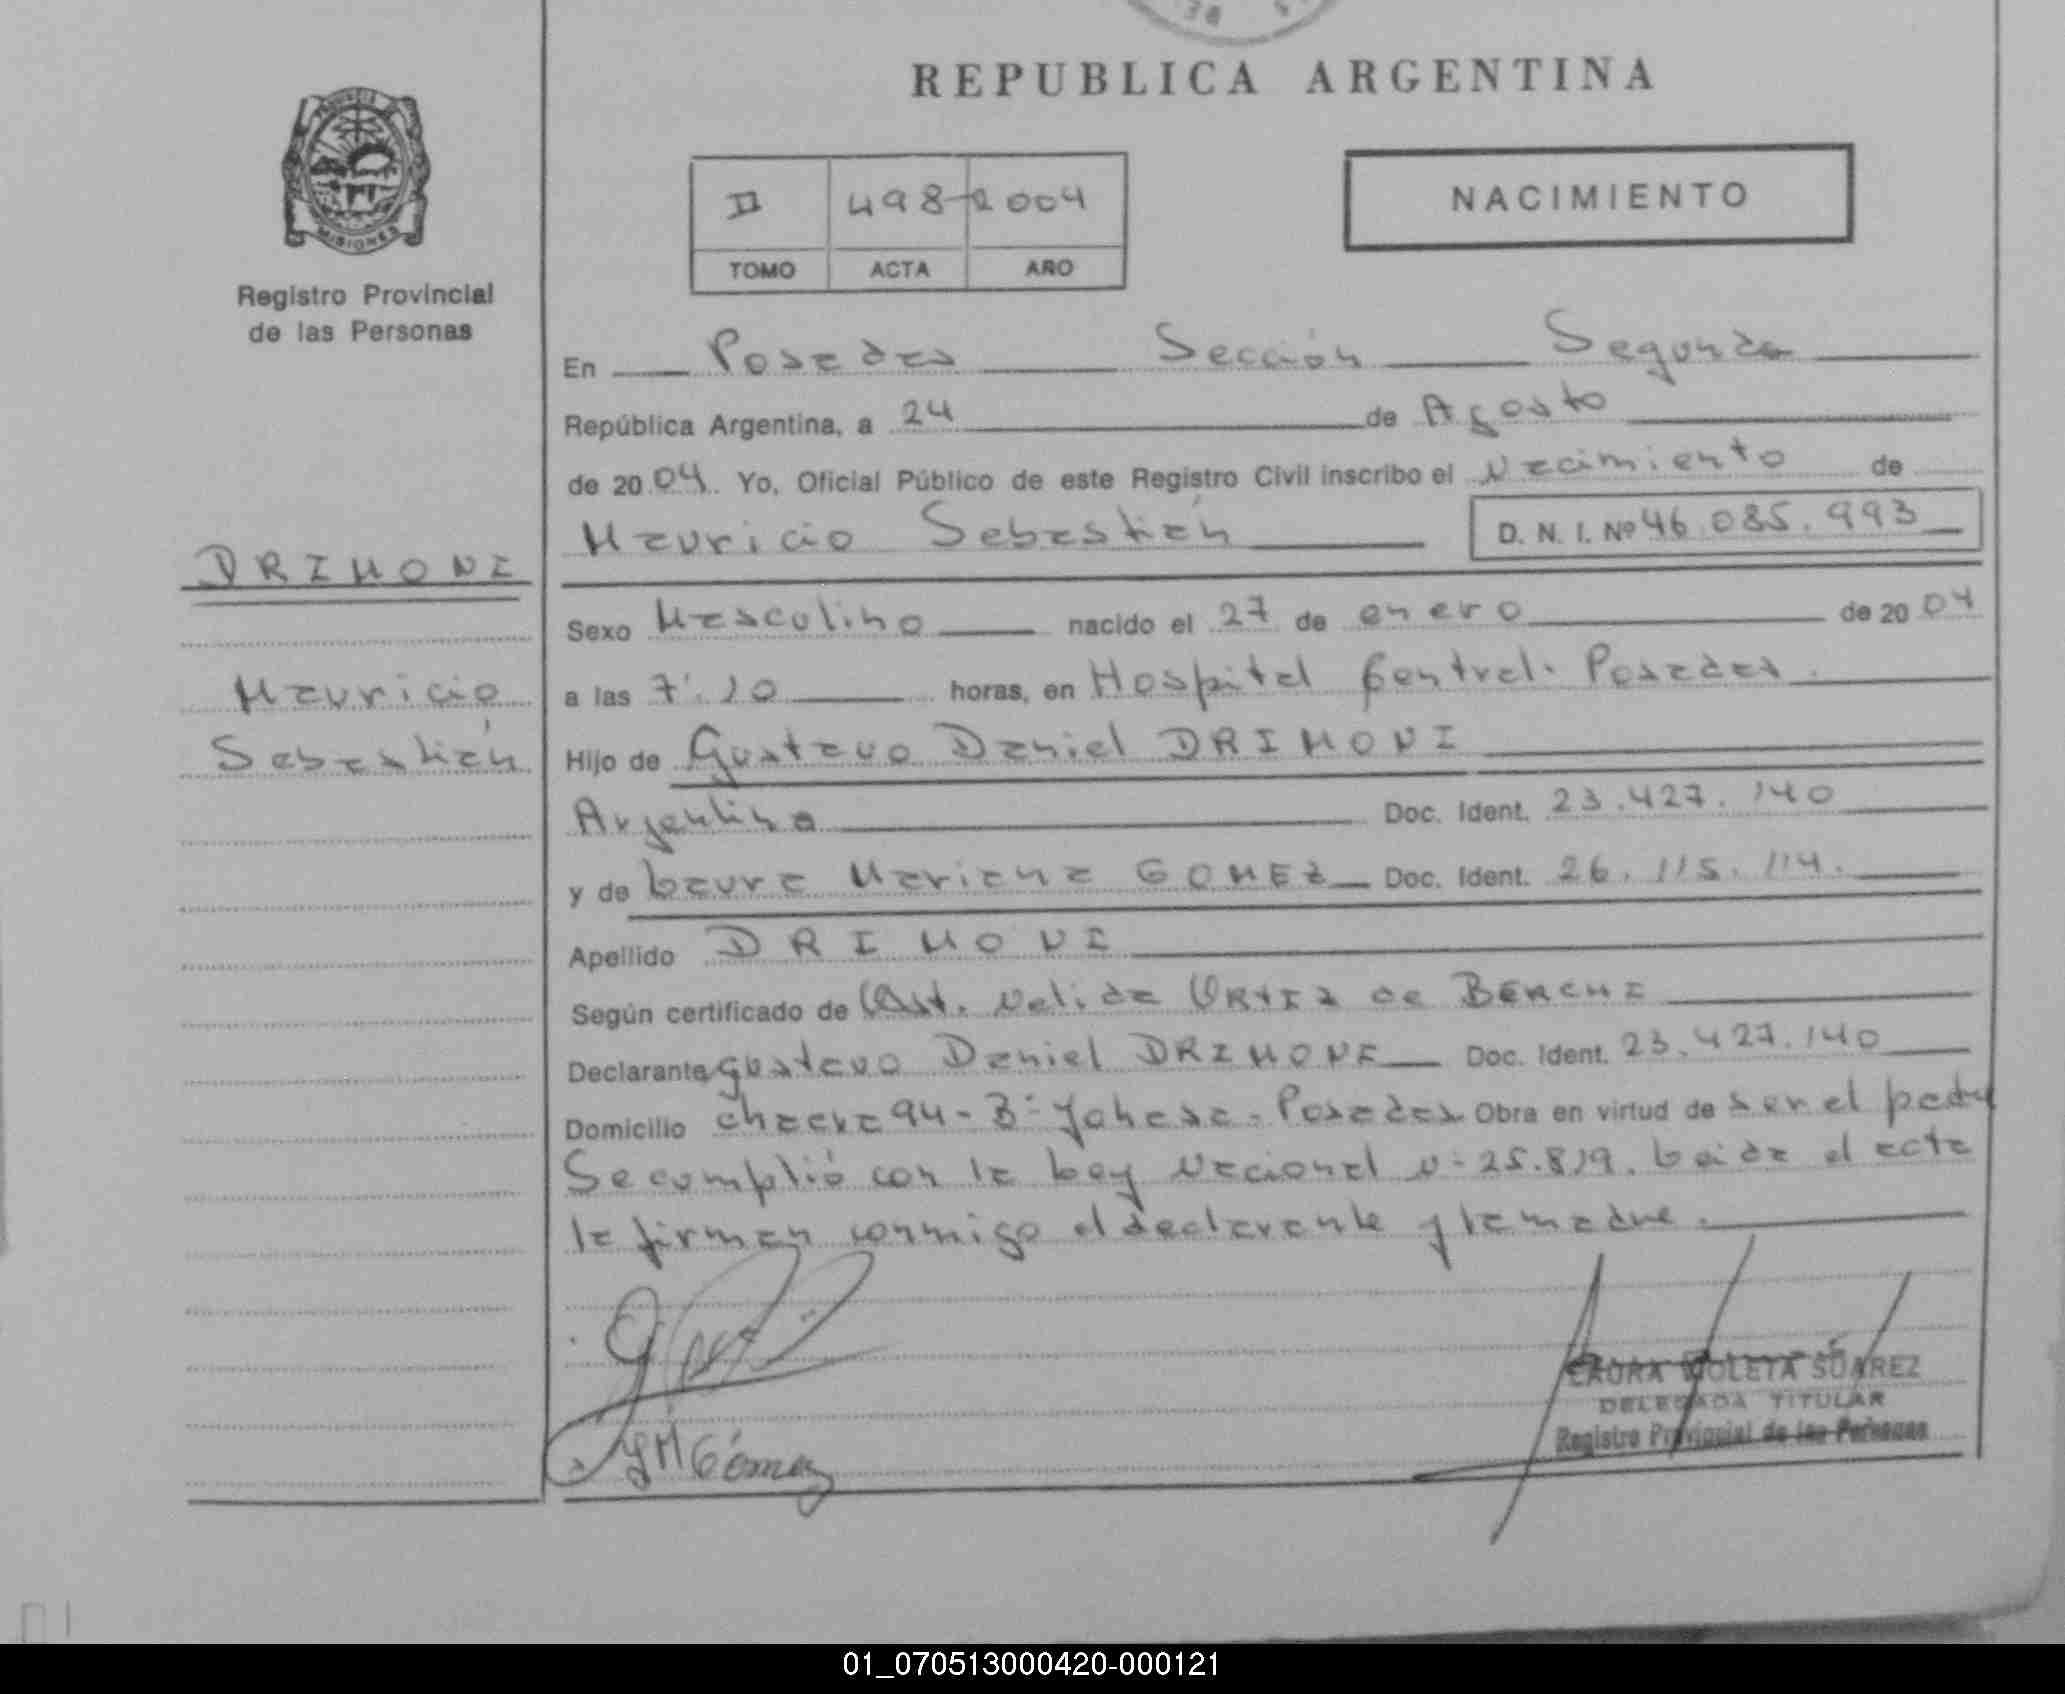 REPUBLICA ARGENTINA
PROVINCIA DE
MISIONES
Registro Provincial
de las Personas
II 498-2004
TOMO ACTA AÑO
NACIMIENTO
En Posadas Sección Segunda
República Argentina, a 24 de Agosto
de 2004. Yo, Oficial Público de este Registro Civil inscribo el Nacimiento de
Mauricio Sebastián D. N. I. Nº 46.085.993
DRIMONI
Mauricio
Sebastián
Sexo Masculino nacido el 27 de enero de 2004
a las 7:20 horas, en Hospital Central. Posadas.
Hijo de Gustavo Daniel DRIMONI
Argentino Doc. Ident. 23.427.140
y de Laura Mariana GOMEZ Doc. Ident. 26.115.114.
Apellido DRIMONI
Según certificado de Obst. Nelida ORTIZ de
Declarante Gustavo Daniel DRIMONI Doc. Ident. 23.427.140
Domicilio chacra 94 - Posadas Obra en virtud de ser el padre
Se cumplió con la Ley Nacional Nº 25.819. Leida el acta
la firman conmigo el declarante y la madre.
LMGómez
LAURA VIOLETA SUAREZ
DELEGADA TITULAR
Registro Provincial de las Personas
01_070513000420-000121